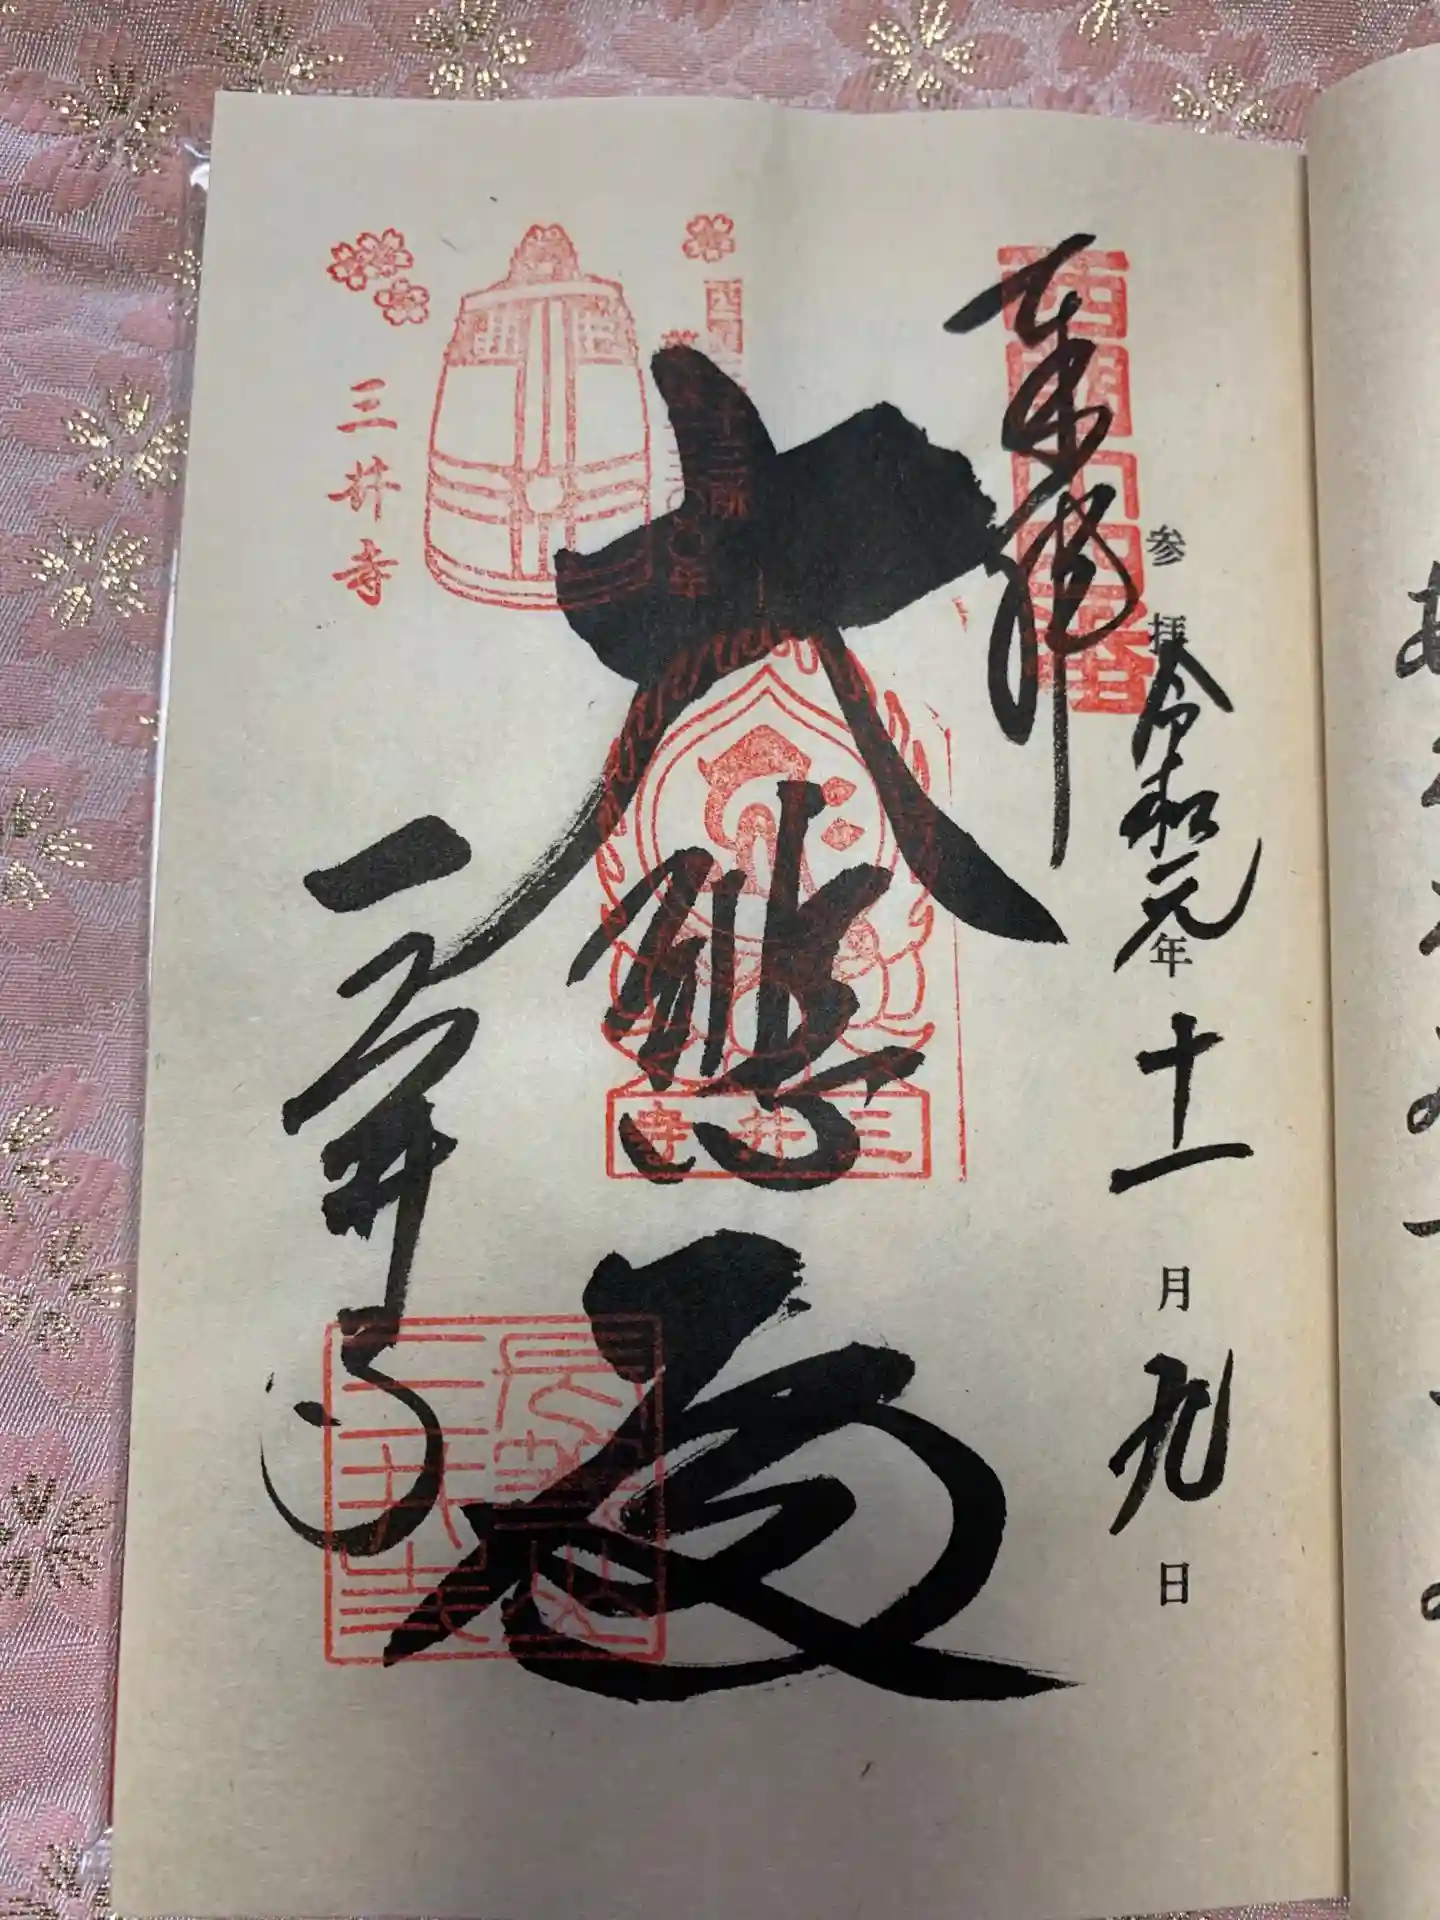 奉拝
西国十四番
参拝令和元年十一月九日
大悲殿
三井寺
三井寺
三井寺